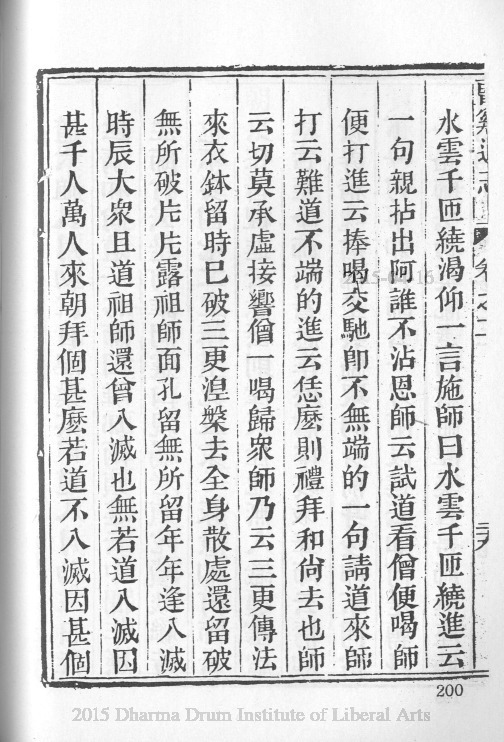 水雲千匝繞渴仰一言施師曰水雲千匝繞進云
一句親拈出阿誰不沾恩師云試道看僧便喝師
便打進云捧喝交馳卽不無端的一句請道來師
打云難道不端的進云恁麼則禮拜和尙去也師
云切莫承虛接響僧一喝歸衆師乃云三更傳法
來衣鉢留時已破三更湼槃去全身散處還留破
無所破片片露祖師面孔留無所留年年逢入滅
時辰大衆且道祖師還曾入滅也無若道入滅因
甚千人萬人來朝拜個甚麼若道不入滅因甚個
200
2015 Dharma Drum Institute of Liberal Arts